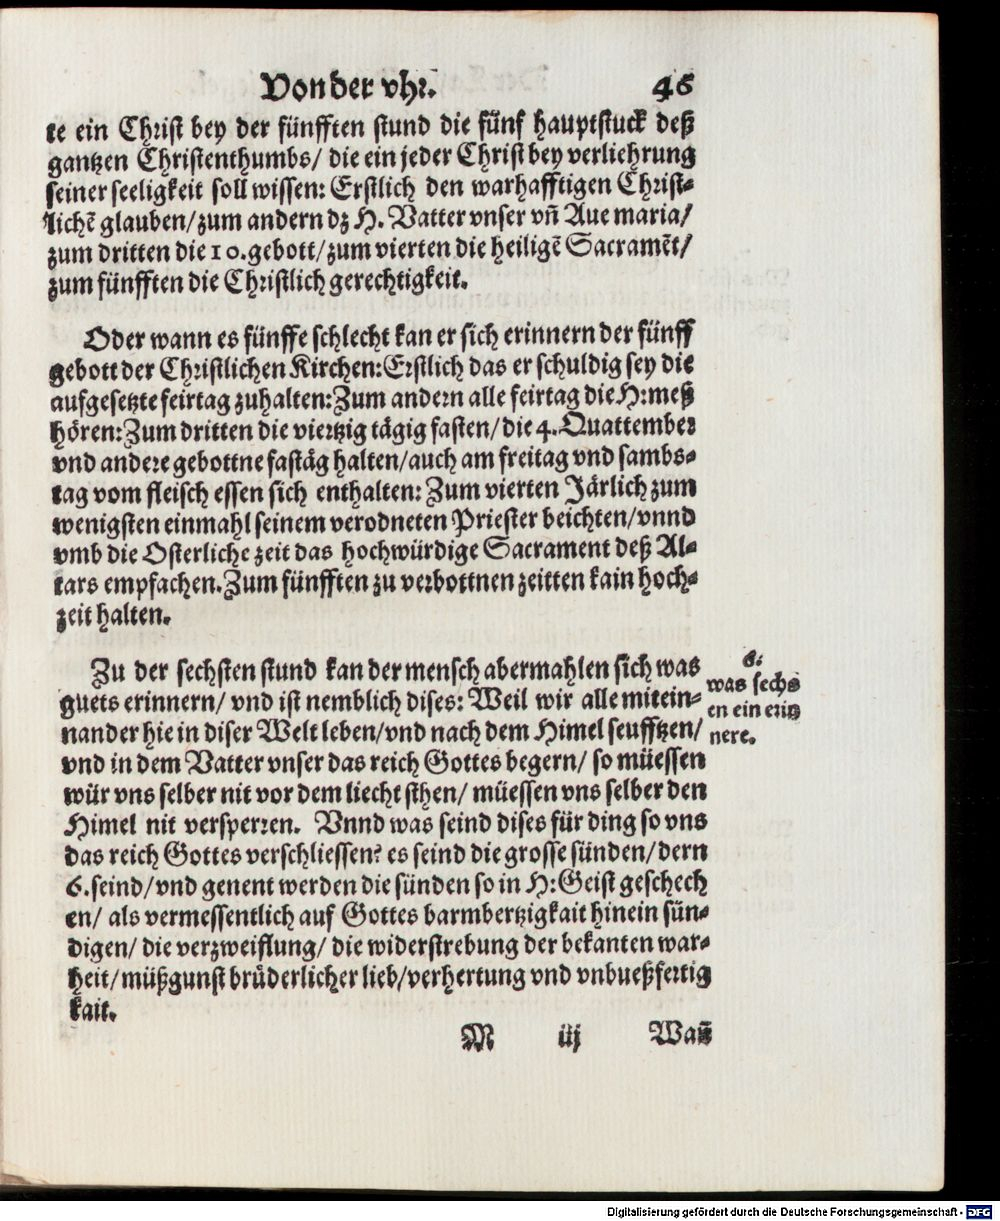 Von der vhr. 46
te ein Christ bey der fünfften stund die fünf hauptstuck deß
gantzen Christenthumbs/ die ein jeder Christ bey verliehrung
seiner seeligkeit soll wissen: Erstlich den warhafftigen Christ-
lichẽ glauben/ zum andern dz H. Vatter vnser vñ Aue maria/
zum dritten die 10. gebott/ zum vierten die heiligẽ Sacramẽt/
zum fünfften die Christlich gerechtigkeit.
Oder wann es fünffe schlecht kan er sich erinnern der fünff
gebott der Christlichen Kirchen: Erstlich das er schuldig sey die
aufgesetzte feirtag zuhalten: Zum andern alle feirtag die H: meß
hören: Zum dritten die viertzig tägig fasten/ die 4. Quattember
vnd andere gebottne fastäg halten/ auch am freitag vnd sambs-
tag vom fleisch essen sich enthalten: Zum vierten Järlich zum
wenigsten einmahl seinem verodneten Priester beichten/ vnnd
vmb die Osterliche zeit das hochwürdige Sacrament deß Al-
tars empfachen. Zum fünfften zu verbottnen zeitten kain hoch-
zeit halten.
Zu der sechsten stund kan der mensch abermahlen sich was
guets erinnern/ vnd ist nemblich dises: Weil wir alle mitein-
nander hie in diser Welt leben/ vnd nach dem Himel seufftzen/
vnd in dem Vatter vnser das reich Gottes begern/ so müessen
wür vns selber nit vor dem liecht sthen/ müessen vns selber den
Himel nit versperren. Vnnd was seind dises für ding so vns
das reich Gottes verschliessen? es seind die grosse sünden/ dern
6. seind/ vnd genent werden die sünden so in H: Geist geschech
en/ als vermessentlich auf Gottes barmbertzigkait hinein sün-
digen/ die verzweiflung/ die widerstrebung der bekanten war-
heit/ müßgunst brüderlicher lieb/ verhertung vnd vnbueßfertig
kait.
6.
was sechs
en ein erin
nere.
M iij Wañ
Digitalisierung gefördert durch die Deutsche Forschungsgemeinschaft - DFG